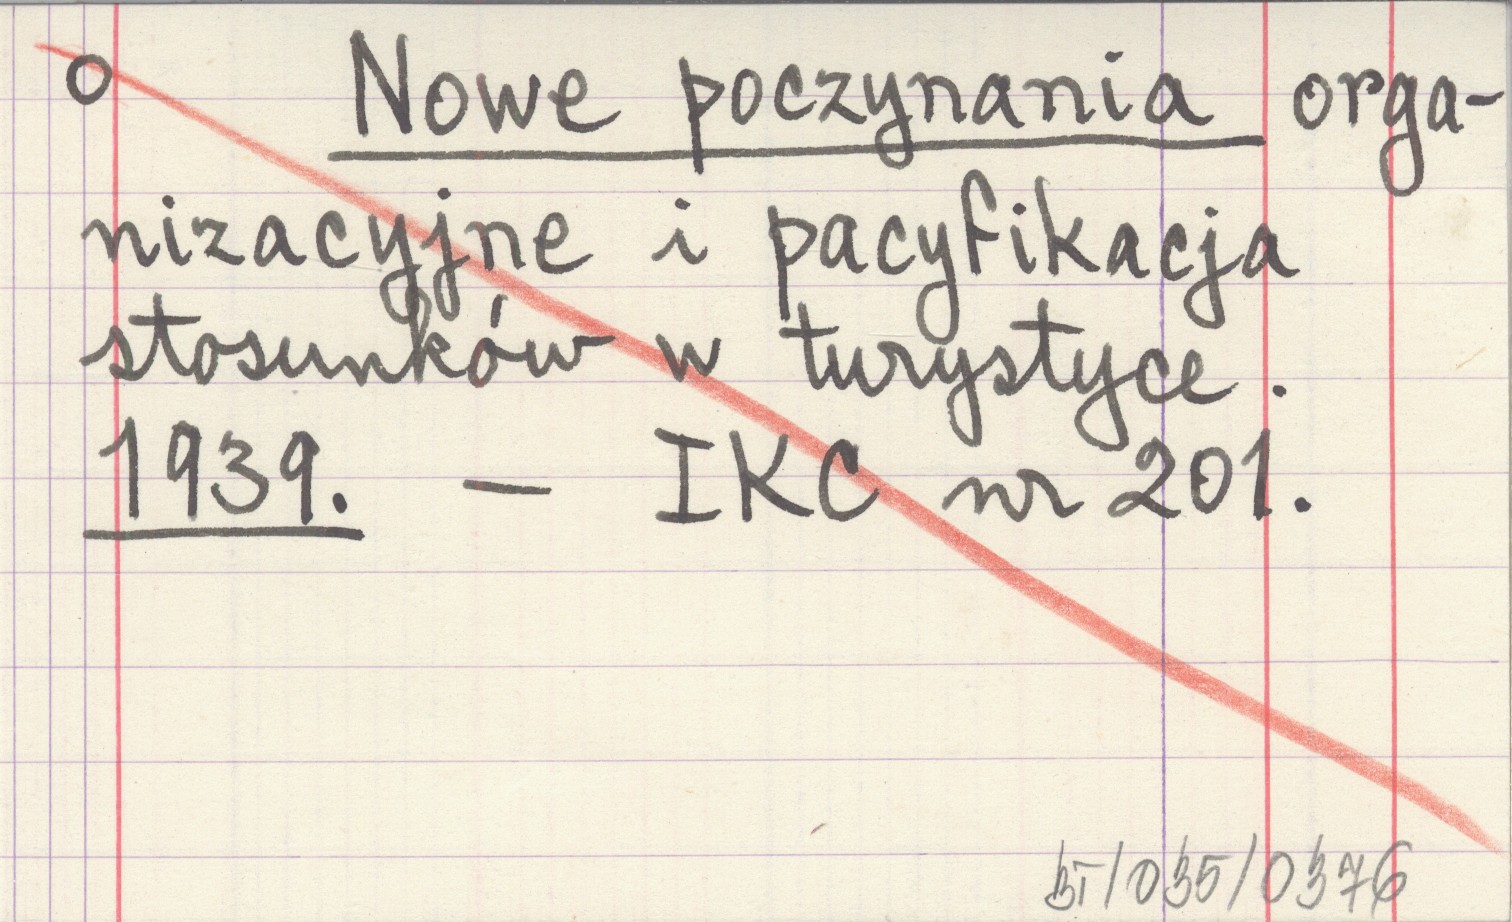 O Nowe poczynania orga-
nizacyjne i pacyfikacja
stosunków w turystyce.
1939. — IKC nr 201.
BT/035/0376